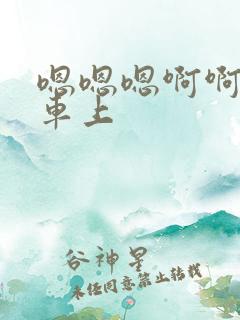 嗯嗯嗯啊啊
車上
谷神星
未经同意禁止转载